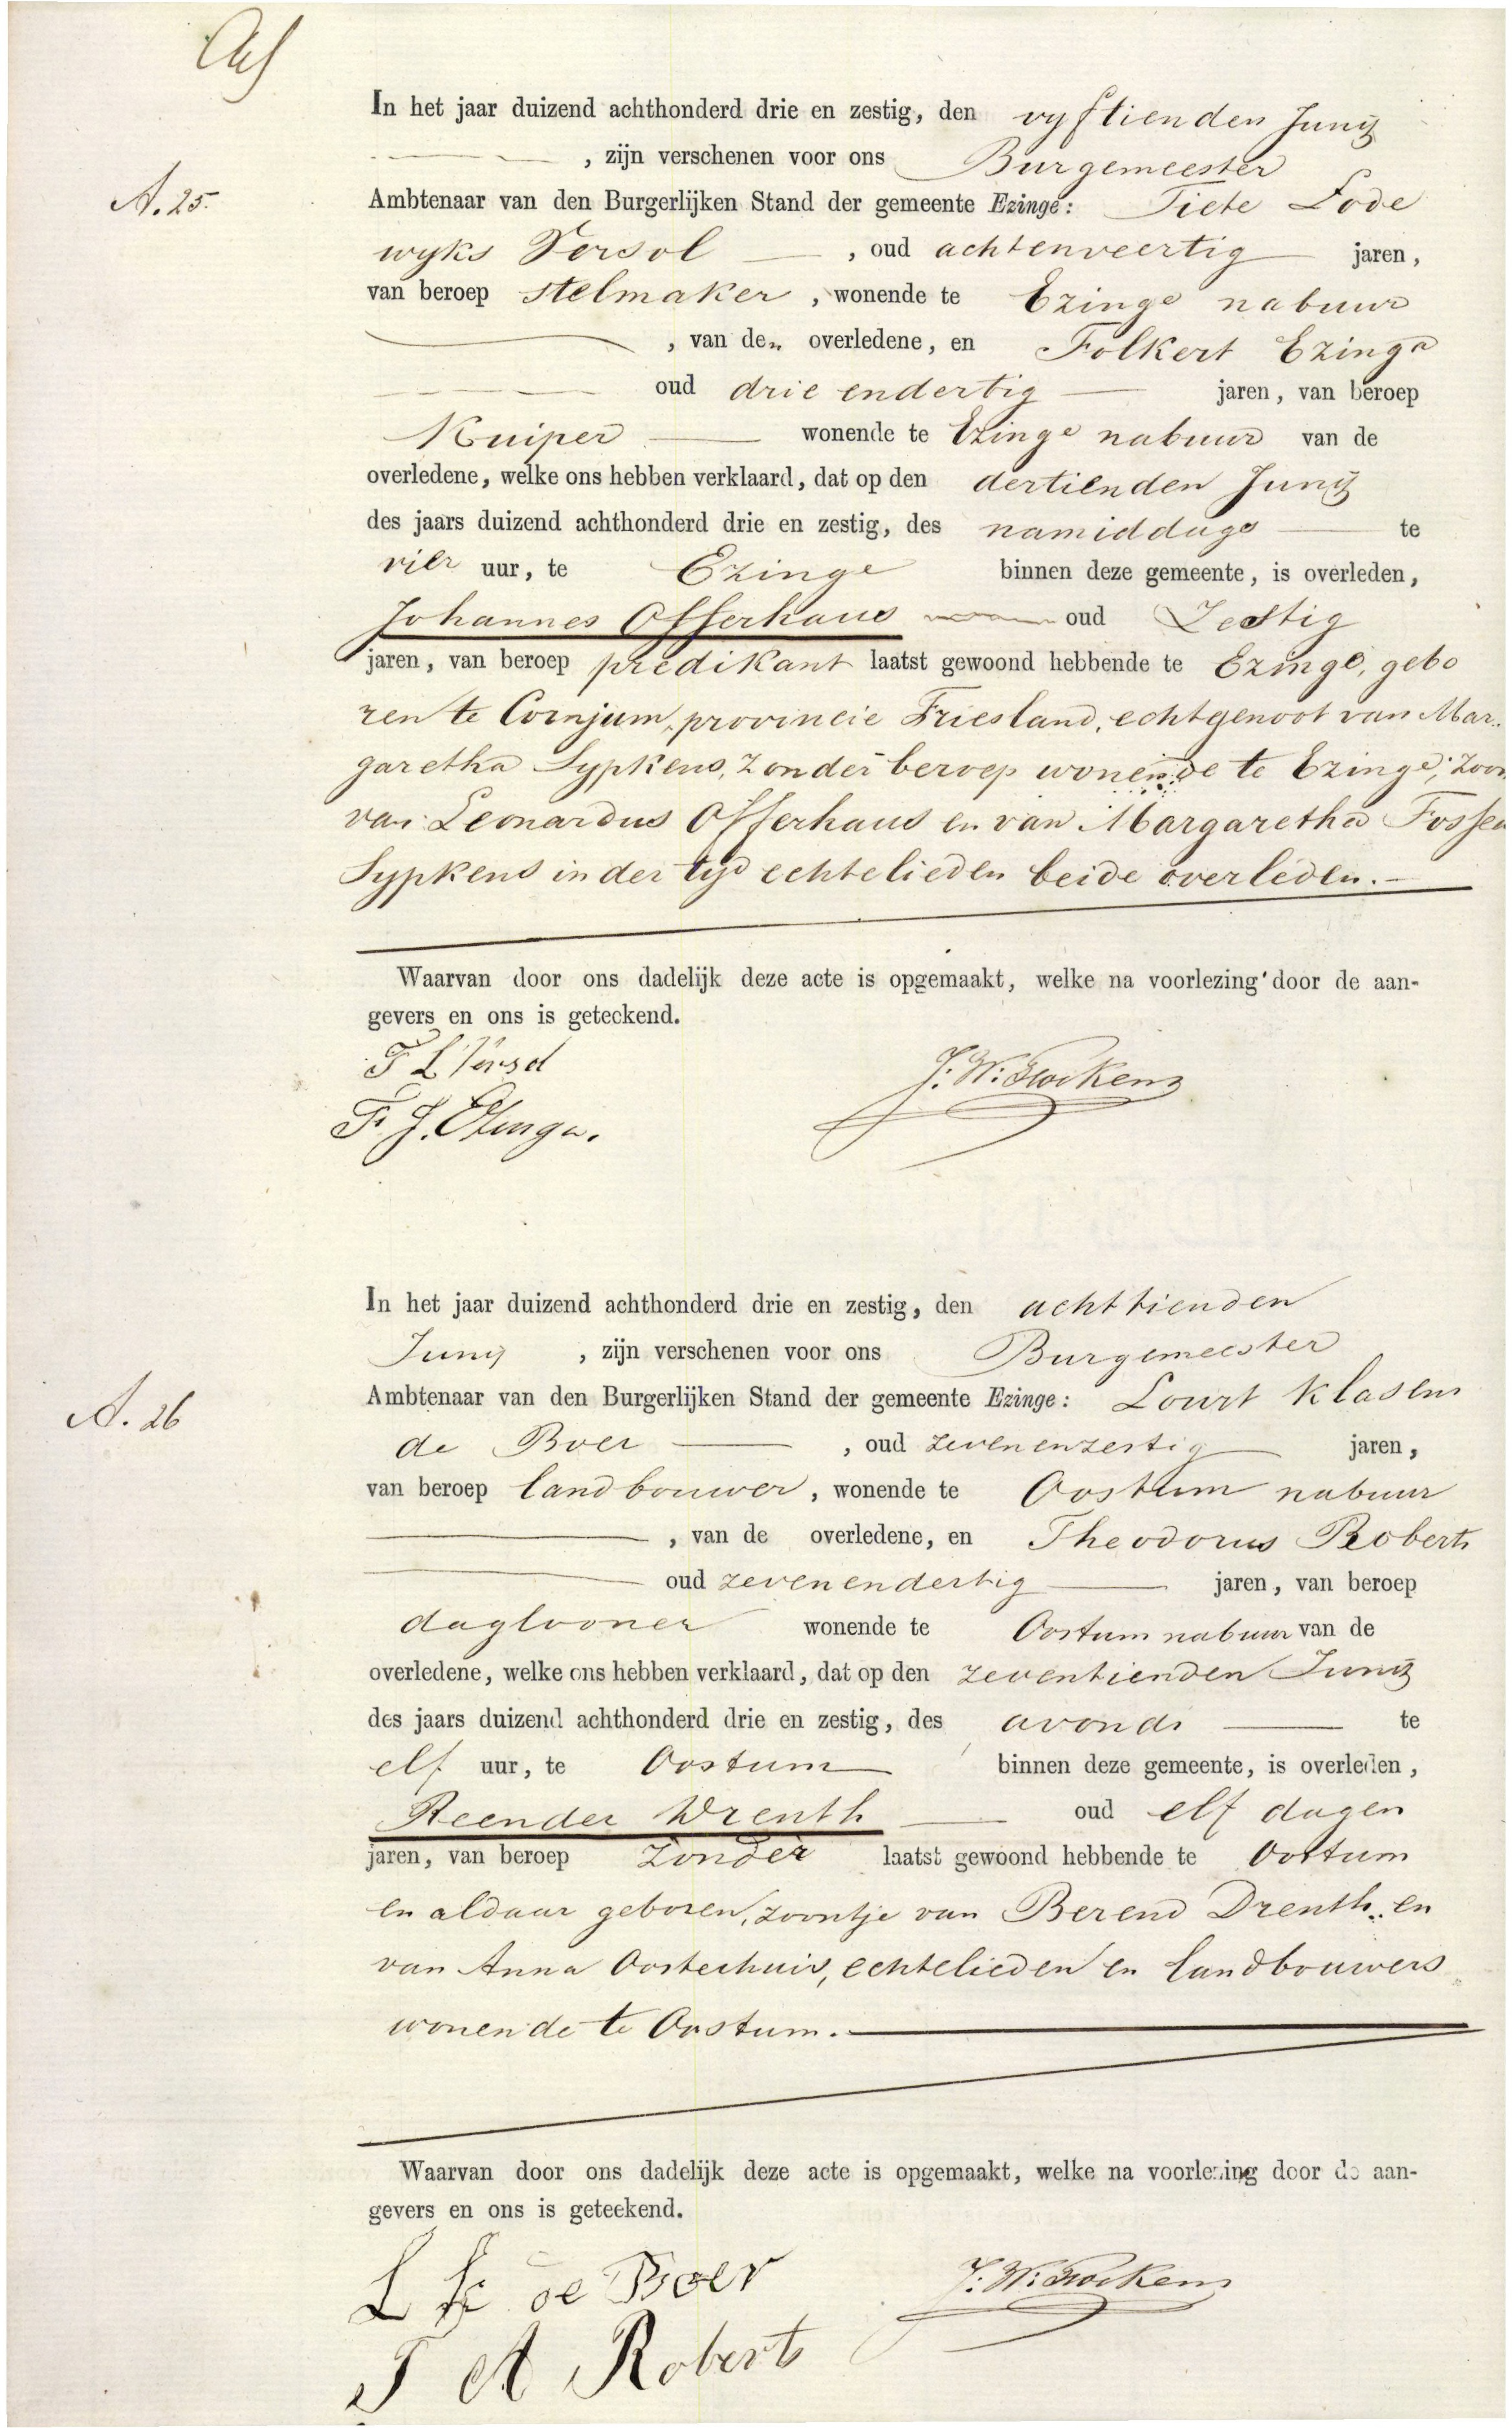 In het jaar duizend achthonderd drie en zestig, den vyftienden Junij
, zijn verschenen voor ons Burgemeester
A. 25.
Ambtenaar van den Burgerlijken Stand der gemeente Ezinge: Tiete Lode
wyks Versol , oud achtenveertig jaren,
van beroep stelmaker , wonende te Ezinge nabuur
, van den overledene, en Folkert Ezinga
oud drie endertig jaren, van beroep
Kuiper wonende te Ezinge nabuur van de
overledene, welke ons hebben verklaard, dat op den dertienden Junij
des jaars duizend achthonderd drie en zestig, des namiddags te
vier uur, te Ezinge binnen deze gemeente, is overleden,
Johannes Offerhaus oud Zestig
jaren, van beroep predikant laatst gewoond hebbende te Ezinge, gebo
ren te Cornjum, provincie Friesland, echtgenoot van Mar-
garetha Sypkens, zonder beroep wonende te Ezinge, zoon
van Leonardus Offerhaus en van Margaretha Fossen
Sypkens in der tyd echtelieden beide overleden.
Waarvan door ons dadelijk deze acte is opgemaakt, welke na voorlezing door de aan-
gevers en ons is geteckend.
T L Versol
F. J. Ezinga.
In het jaar duizend achthonderd drie en zestig, den achttienden
Junij , zijn verschenen voor ons Burgemeester
A. 26
Ambtenaar van den Burgerlijken Stand der gemeente Ezinge: Lourt Klasens
de Boer , oud zevenenzestig jaren,
van beroep landbouwer, wonende te Oostum nabuur
, van de overledene, en Theodorus Roberts
oud zevenendertig jaren, van beroep
daglooner wonende te Oostum nabuur van de
overledene, welke ons hebben verklaard, dat op den zeventienden Junij
des jaars duizend achthonderd drie en zestig, des avonds te
elf uur, te Oostum binnen deze gemeente, is overleden,
Reender Drenth oud elf dagen
jaren, van beroep zonder laatst gewoond hebbende te Oostum
en aldaar geboren, zoontje van Berend Drenth en
van Anna Oosterhuis, echtelieden en landbouwers
wonende te Oostum.
Waarvan door ons dadelijk deze acte is opgemaakt, welke na voorlezing door de aan-
gevers en ons is geteekend.
L K de Boer
T A Roberts